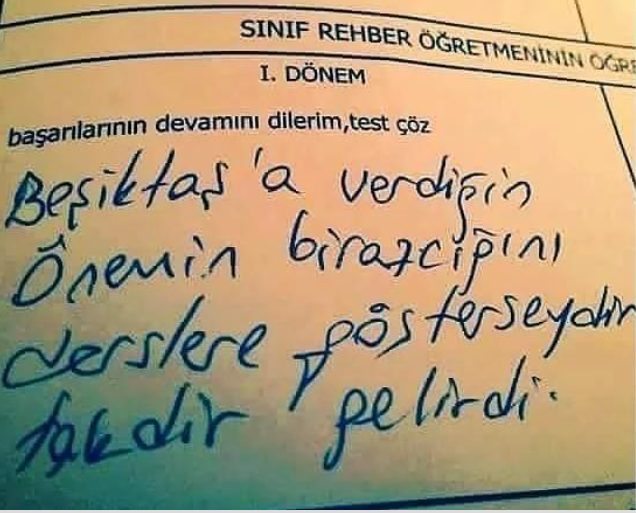 SINIF REHBER ÖĞRETMENİNİN ÖĞRE
I. DÖNEM
başarılarının devamını dilerim,test çöz
Beşiktaş'a verdiğin
Önemin birazcığını
derslere gösterseydin
takdir gelirdi.